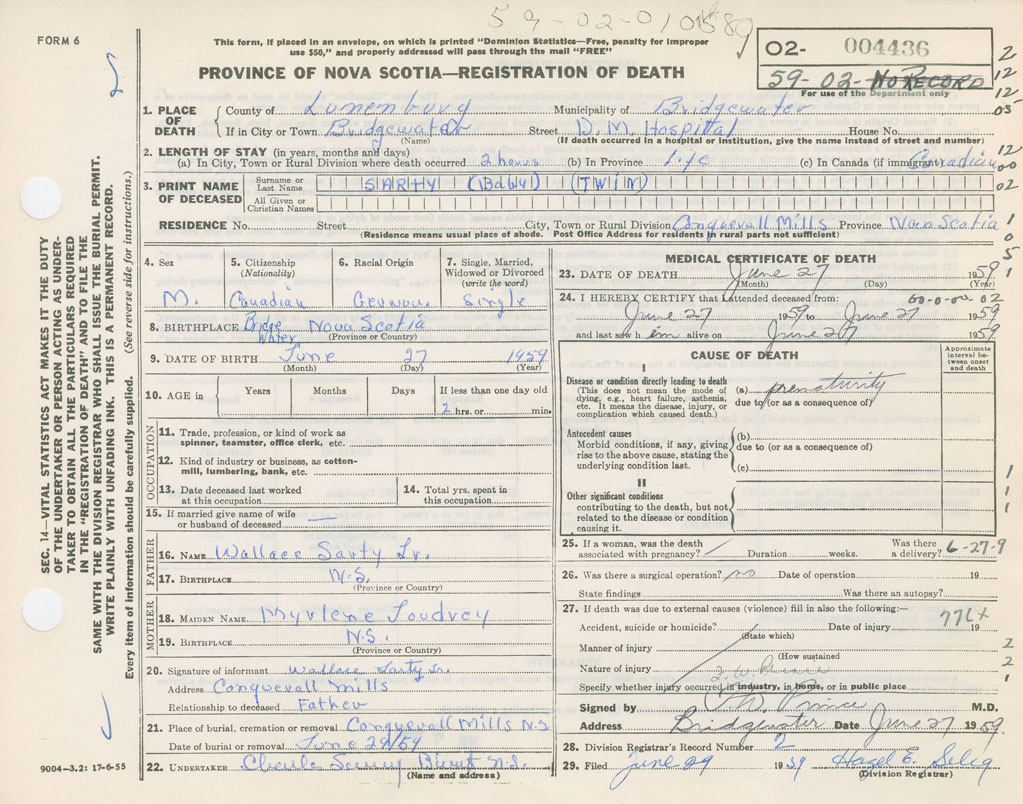 59-02-0
FORM 6
This form, if placed in an envelope, on which is printed "Dominion Statistics—Free, penalty for improper
use $50," and properly addressed will pass through the mail "FREE"
02- 004436
59-02- NO RECORD
For use of the Department only
PROVINCE OF NOVA SCOTIA—REGISTRATION OF DEATH
2
12
12
05
12
00
02
1
0
5
1
SEC. 14—VITAL STATISTICS ACT MAKES IT THE DUTY
OF THE UNDERTAKER OR PERSON ACTING AS UNDER-
TAKER TO OBTAIN ALL THE PARTICULARS REQUIRED
IN THE "REGISTRATION OF DEATH" AND TO FILE THE
SAME WITH THE DIVISION REGISTRAR WHO SHALL ISSUE THE BURIAL PERMIT.
WRITE PLAINLY WITH UNFADING INK. THIS IS A PERMANENT RECORD.
Every item of information should be carefully supplied. (See reverse side for instructions.)
1. PLACE OF DEATH
County of Lunenburg Municipality of Bridgewater
If in City or Town Bridgewater Street D. M. Hospital House No.
(Name) (If death occurred in a hospital or institution, give the name instead of street and number)
2. LENGTH OF STAY (in years, months and days)
(a) In City, Town or Rural Division where death occurred 2 hours (b) In Province Life (c) In Canada (if immigrant) Canadian
3. PRINT NAME OF DECEASED
Surname or Last Name SARTY (Baby) (TWIN)
All Given or Christian Names
RESIDENCE No. Street City, Town or Rural Division Conquerall Mills Province Nova Scotia
(Residence means usual place of abode. Post Office Address for residents in rural parts not sufficient)
4. Sex
M.
5. Citizenship
(Nationality)
Canadian
6. Racial Origin
German
7. Single, Married,
Widowed or Divorced
(write the word)
Single
8. BIRTHPLACE Bridgewater Nova Scotia
(Province or Country)
9. DATE OF BIRTH June 27 1959
(Month) (Day) (Year)
10. AGE in Years Months Days If less than one day old
2 hrs. or min.
OCCUPATION
11. Trade, profession, or kind of work as
spinner, teamster, office clerk, etc.
12. Kind of industry or business, as cotton-
mill, lumbering, bank, etc.
13. Date deceased last worked
at this occupation
14. Total yrs. spent in
this occupation
15. If married give name of wife
or husband of deceased —
FATHER
16. NAME Wallace Sarty Jr.
17. BIRTHPLACE N.S.
(Province or Country)
MOTHER
18. MAIDEN NAME Myrlene Toudrey
19. BIRTHPLACE N.S.
(Province or Country)
20. Signature of informant Wallace Sarty Jr.
Address Conquerall Mills
Relationship to deceased Father
21. Place of burial, cremation or removal Conquerall Mills N.S.
Date of burial or removal June 29/59
22. UNDERTAKER N.S.
(Name and address)
9004—3.2: 17-6-55
MEDICAL CERTIFICATE OF DEATH
23. DATE OF DEATH June 27 1959
(Month) (Day) (Year)
24. I HEREBY CERTIFY that I attended deceased from: 00-0-00-02
June 27 1959 to June 27 1959
and last saw h im alive on June 27 1959
CAUSE OF DEATH
Approximate
interval be-
tween onset
and death
I
Disease or condition directly leading to death
(This does not mean the mode of
dying, e.g., heart failure, asthenia,
etc. It means the disease, injury, or
complication which caused death.)
(a) prematurity
due to (or as a consequence of)
Antecedent causes
Morbid conditions, if any, giving
rise to the above cause, stating the
underlying condition last.
(b)
due to (or as a consequence of)
(c)
II
Other significant conditions
contributing to the death, but not
related to the disease or condition
causing it.
1
1
1
25. If a woman, was the death
associated with pregnancy? Duration weeks.
Was there
a delivery? 6-27-9
26. Was there a surgical operation? no Date of operation 19
State findings Was there an autopsy?
27. If death was due to external causes (violence) fill in also the following:—
776X
Accident, suicide or homicide? Date of injury 19
(State which)
Manner of injury
(How sustained
Nature of injury
Specify whether injury occurred in industry, in home, or in public place
2
2
1
Signed by Prince M.D.
Address Bridgewater Date June 27 1959
28. Division Registrar's Record Number 2
29. Filed June 29 1959 Hazel E. Selig
(Division Registrar)